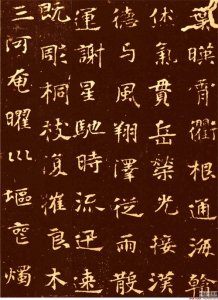 葉暎霄衢根通海翰
伏氣貫岳榮光接漢
德与風翔澤從雨散
運謝星馳時流迅速
既彫桐枝復摧良木
三河奄曜川塸燭